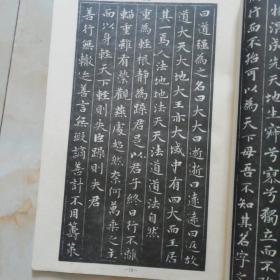 行而不殆可以為天下母吾不知其名字之
曰道強為之名曰大大曰逝逝曰遠遠曰反故
道大天大地大王亦大域中有四大而王居
其一焉人法地地法天天法道道法自然
重為輕根靜為躁君是以君子終日行不離
輜重雖有榮觀燕處超然柰何萬乘之主
而以身輕天下輕則失臣躁則失君
善行無轍迹善言無瑕謫善計不用籌策